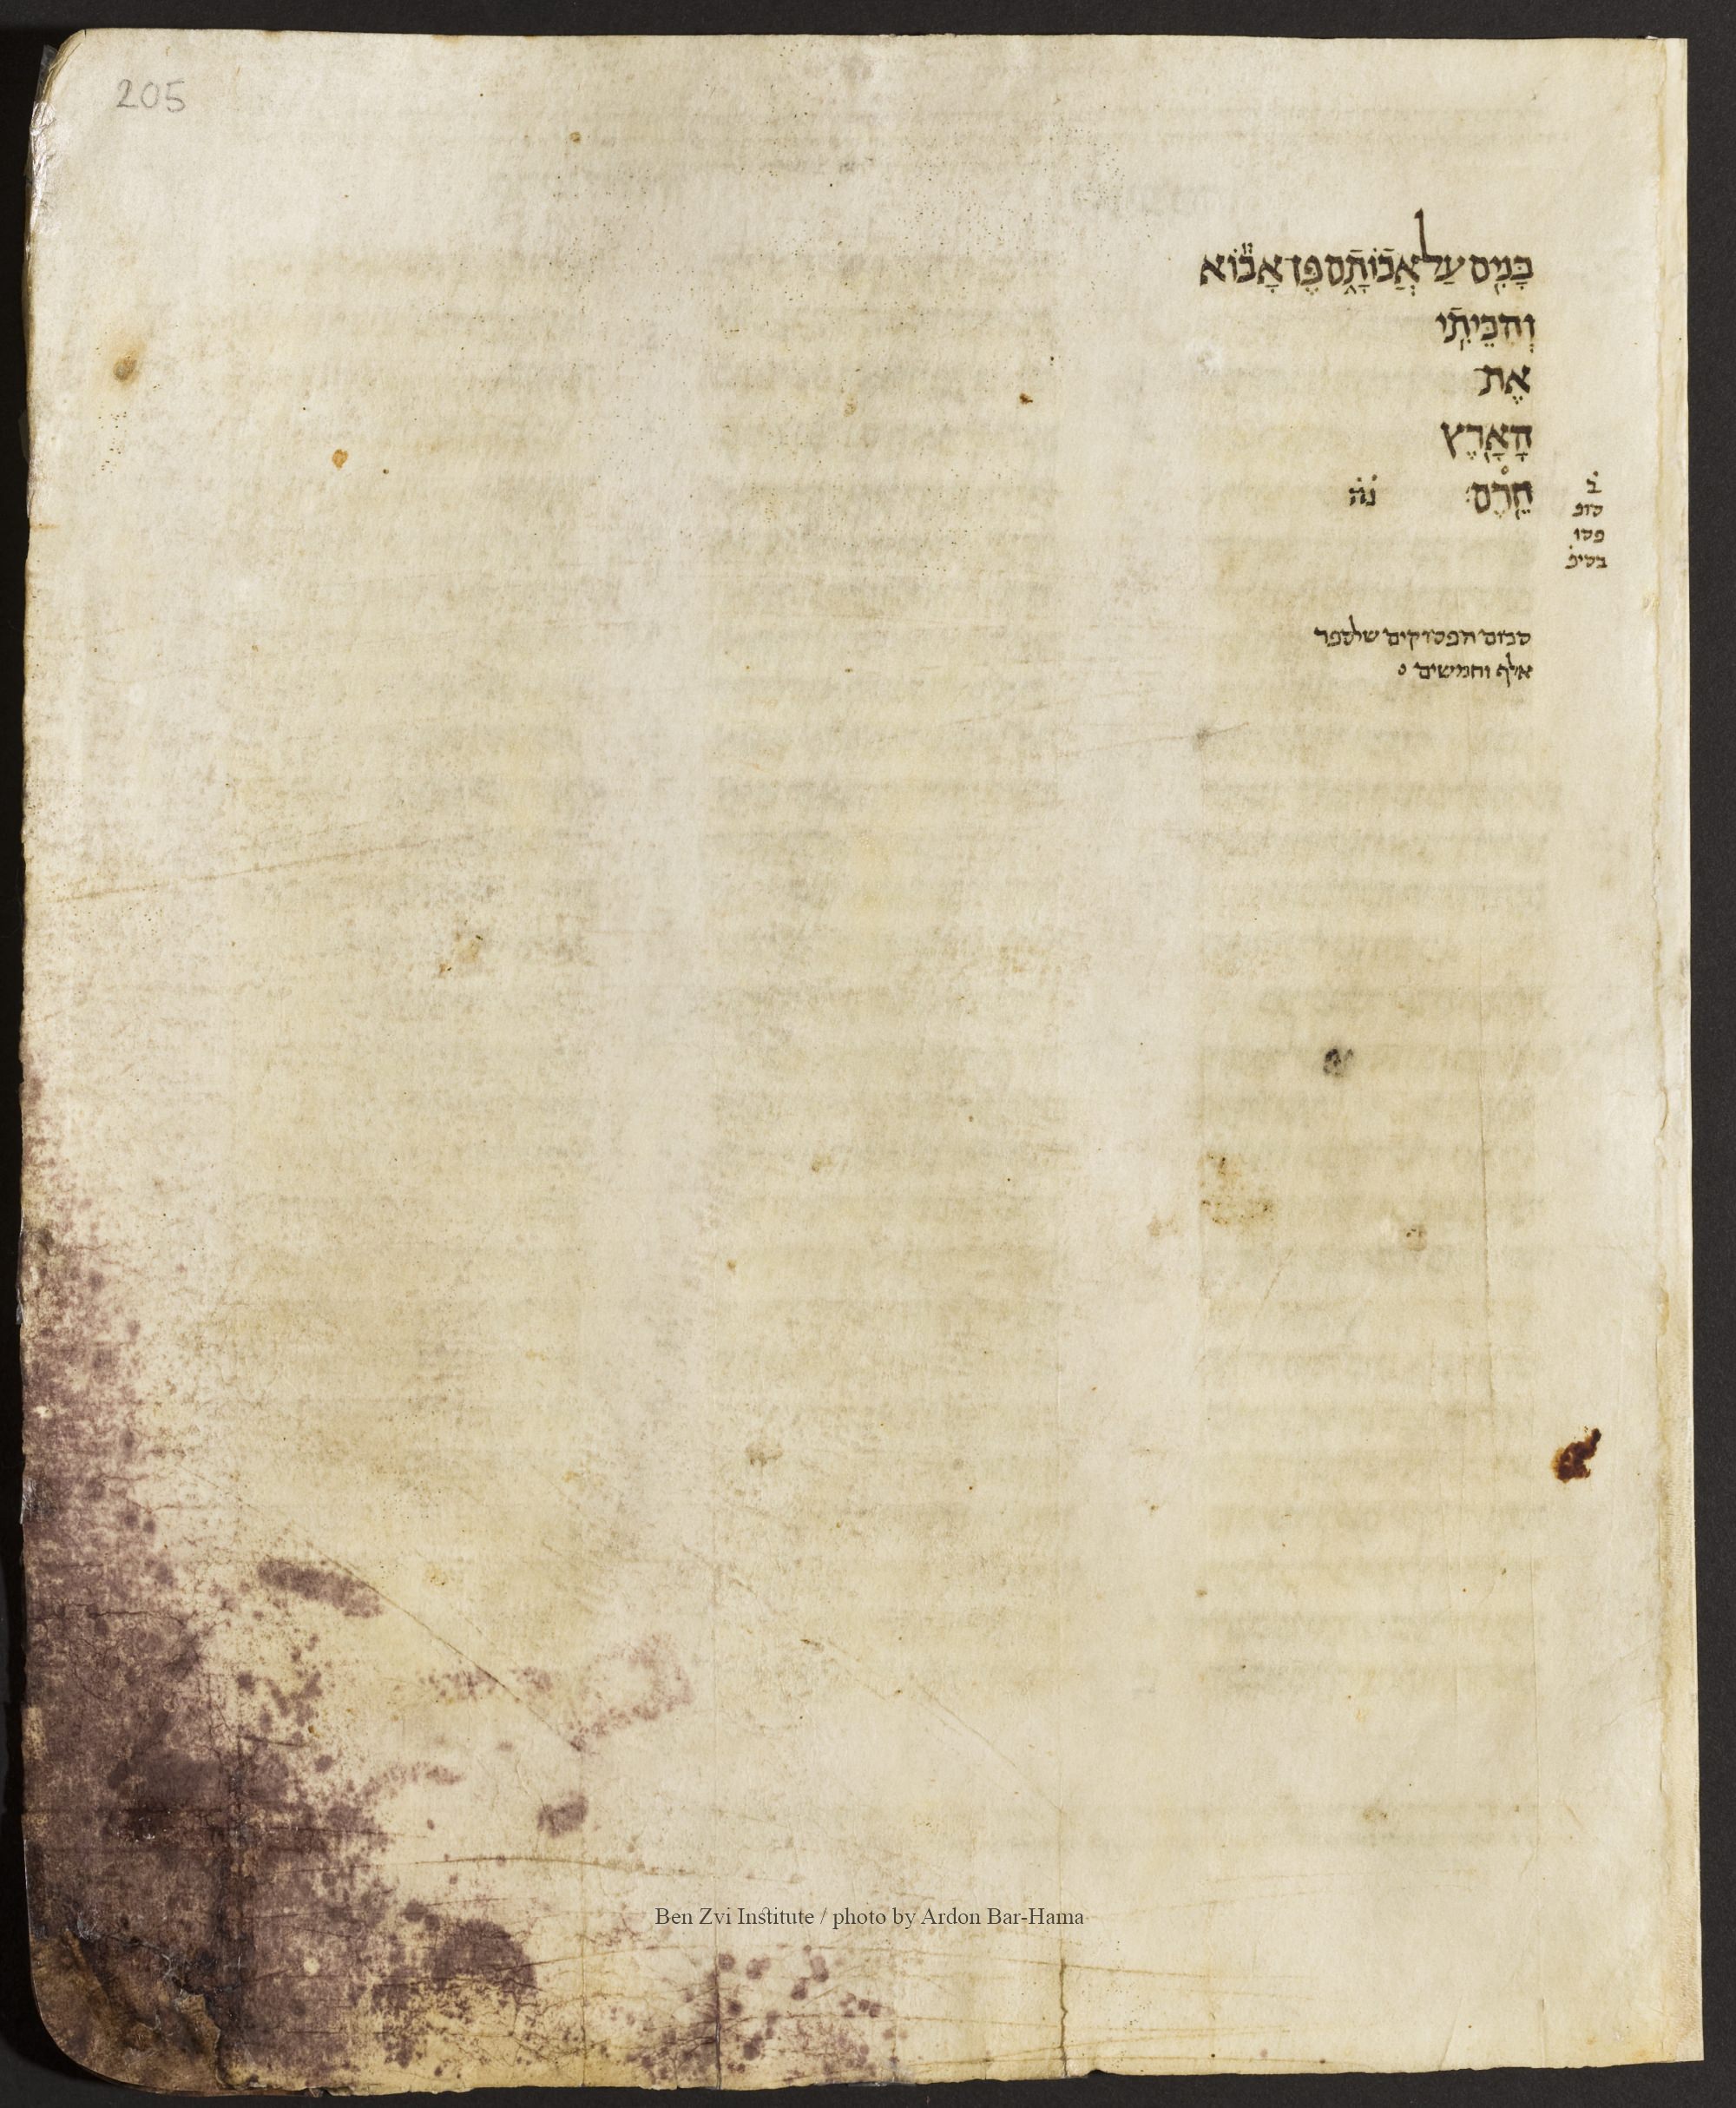 205
בָּנִ֖ים עַל־אֲבוֹתָ֑ם פֶּן־אָב֕וֹא
וְהִכֵּיתִ֥י
אֶת־
הָאָ֖רֶץ
חֵֽרֶם׃ נׄהׄ
בׄ
סופ
פסו
בסיפׄ
סכום הפסוקים שלספר
אלף וחמשים ס
Ben Zvi Institute / photo by Ardon Bar-Hama